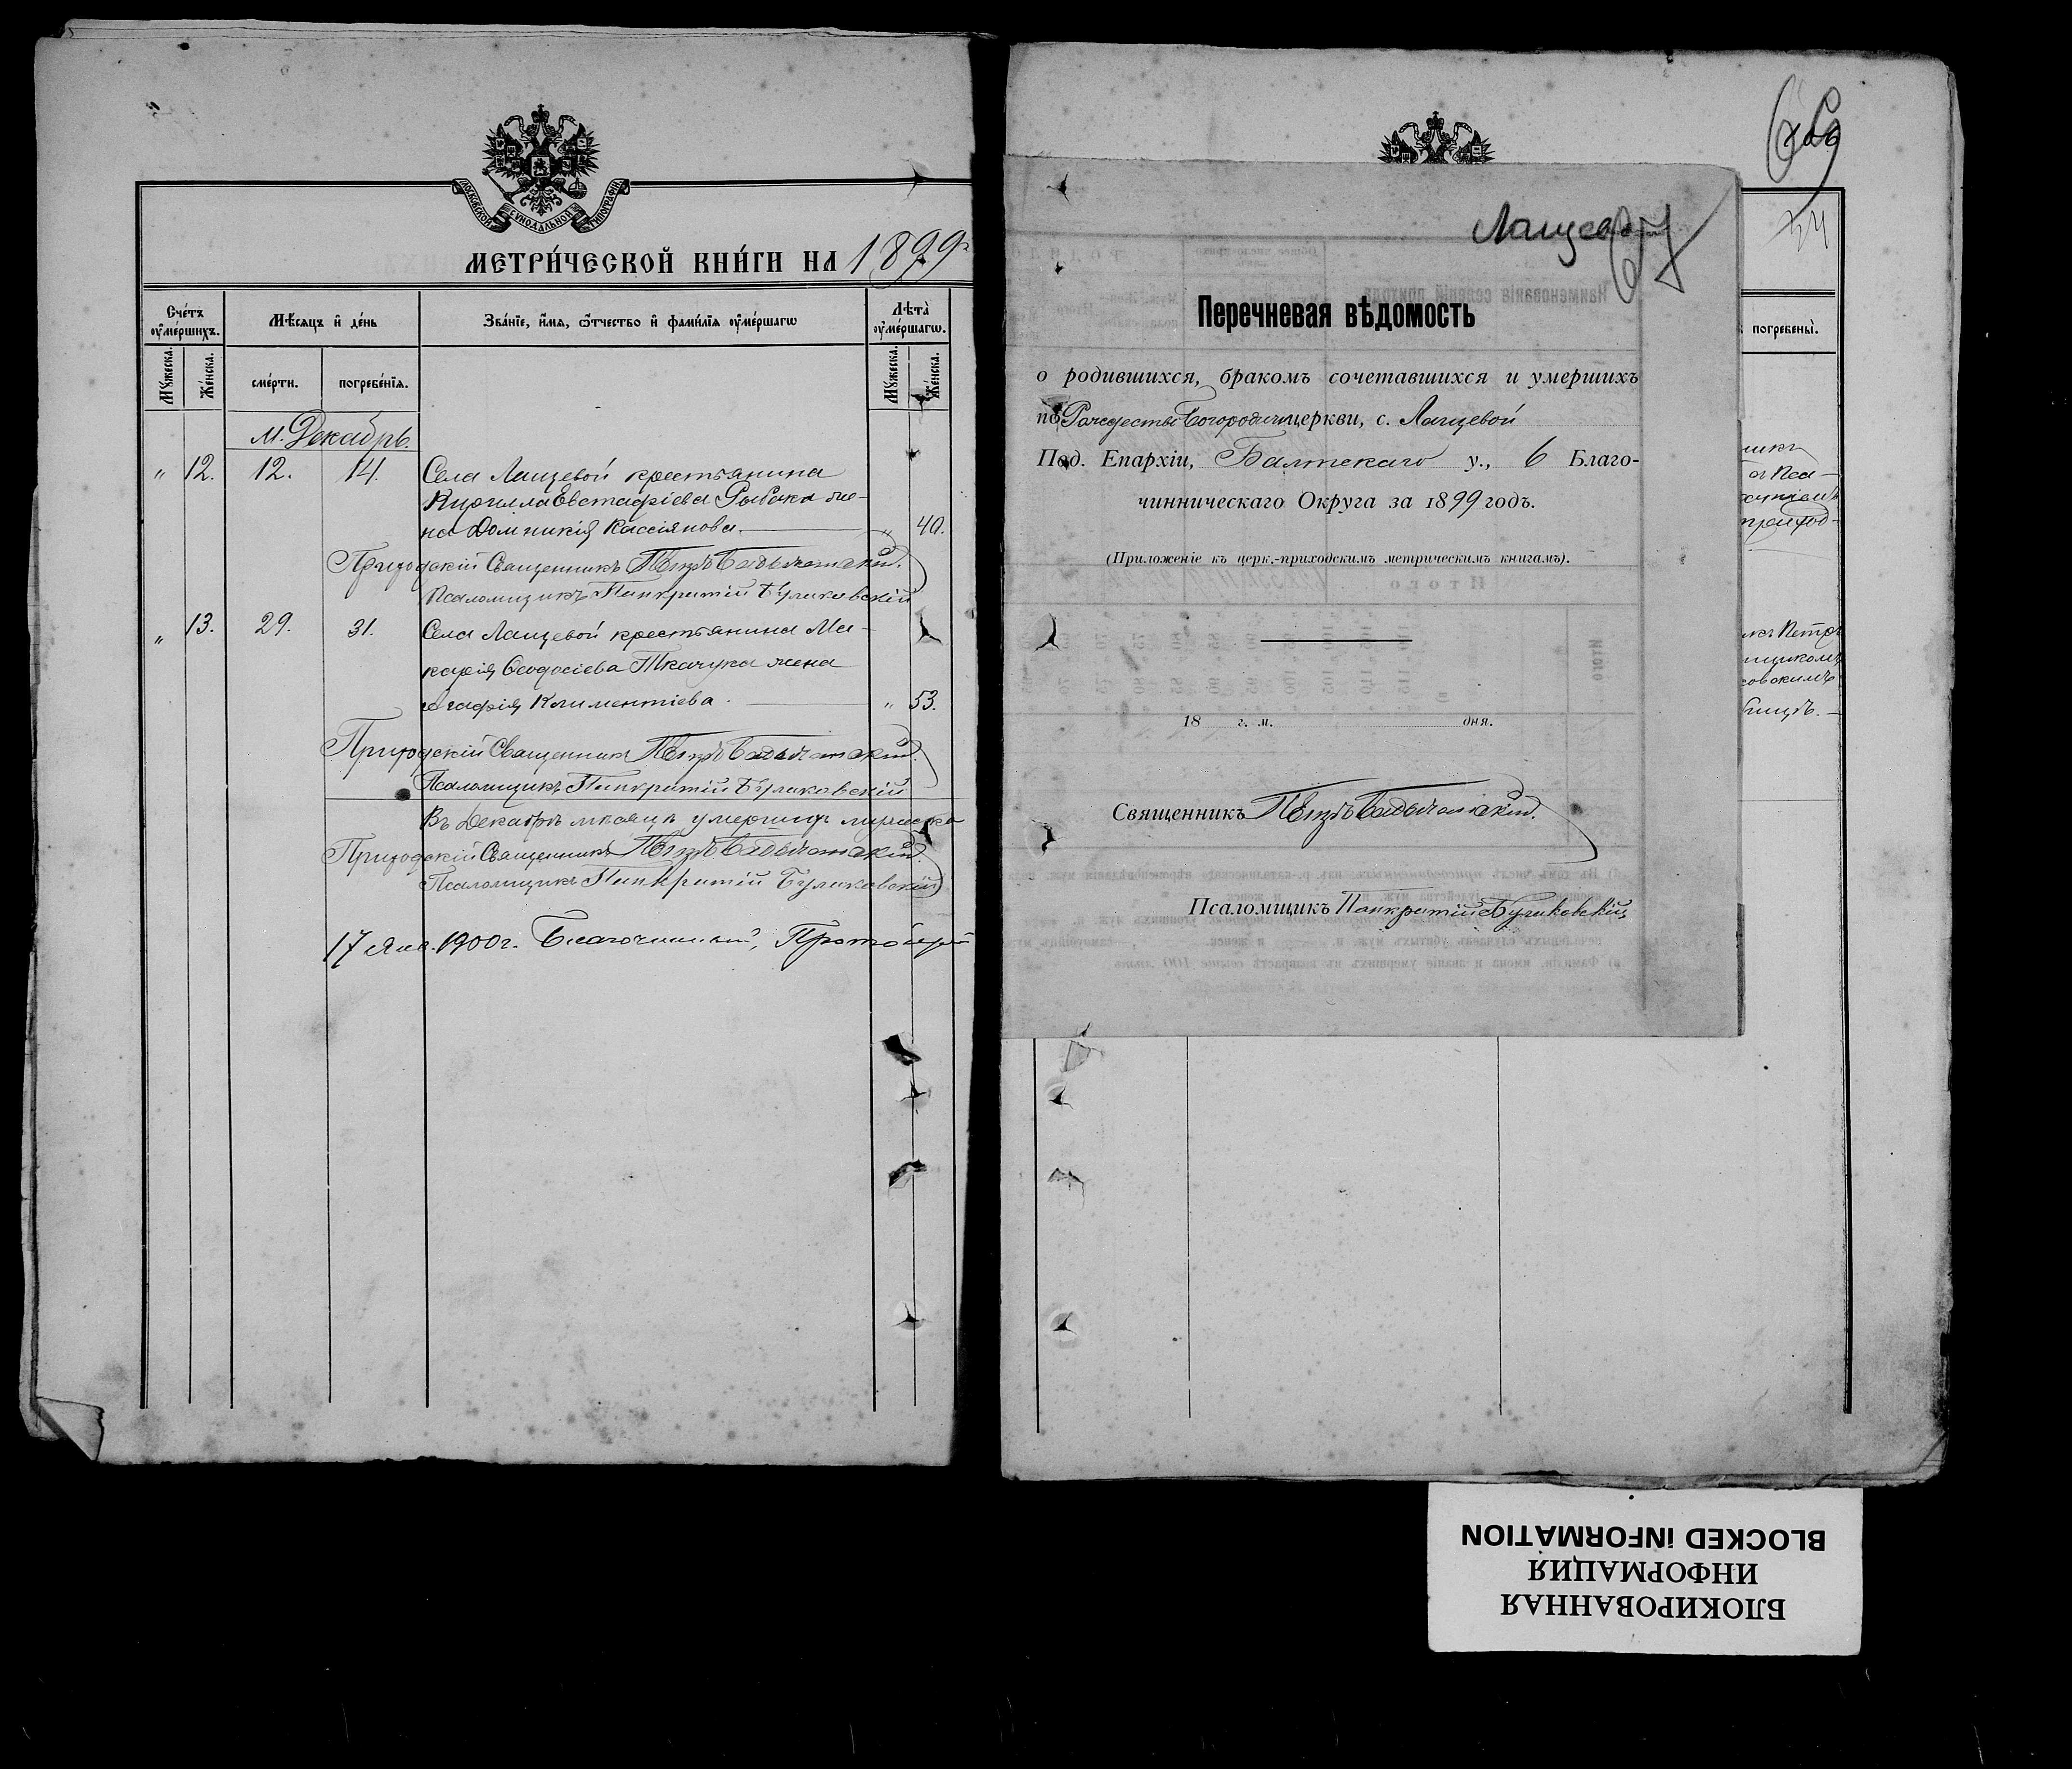 МОСКОВСКОЙ СѴНОДАЛЬНОЙ ТИПОГРАФІИ
МЕТРИ́ЧЕСКОЙ КНИ́ГИ НА 1899 г.
Счётъ ᲂу҆ме́ршихъ.
Мѣ́сяцъ и҆ де́нь
Зва́нїе, и҆́мя, ѻ҆́тчество и҆ фами́лїя ᲂу҆ме́ршагѡ
Лѣта̀ ᲂу҆ме́ршагѡ.
Мꙋ́жеска.
Же́нска.
сме́рти.
погребе́нїя.
Мꙋ́жеска.
Же́нска.
м. Декабрь.
" 12. 12. 14. Села Лащевой крестьянина
Кирилла Евстафіева Рыбака же-
на Домникія Кассіянова. " 40.
Приходскій Священникъ Петръ
Псаломщикъ Панкратій Буликовскій
" 13. 29. 31. Села Лащевой крестьянина Ма-
карія Ѳеодосіева Ткачука жена
Агафія Климентіева. " 53.
Приходскій Священникъ Петръ
Псаломщикъ Панкратій Буликовскій
Въ Декабрѣ мѣсяцѣ умершихъ мужеска
Приходскій Священникъ Петръ
Псаломщикъ Панкратій Буликовскій
17 Янв. 1900 г. Благочинный, Протоіерей
68
34
Лащевой
67
Перечневая вѣдомость
о родившихся, бракомъ сочетавшихся и умершихъ
по Рождество-Богородичн церкви, с. Лащевой
Под. Епархіи, Балтскаго у., 6 Благо-
чинническаго Округа за 1899 годъ.
(Приложеніе къ церк.-приходскимъ метрическимъ книгамъ).
18 г. м. дня.
Священникъ Петръ
Псаломщикъ Панкратій Буликовскій
погребены̀.
БЛОКИРОВАННАЯ
ИНФОРМАЦИЯ
BLOCKED INFORMATION